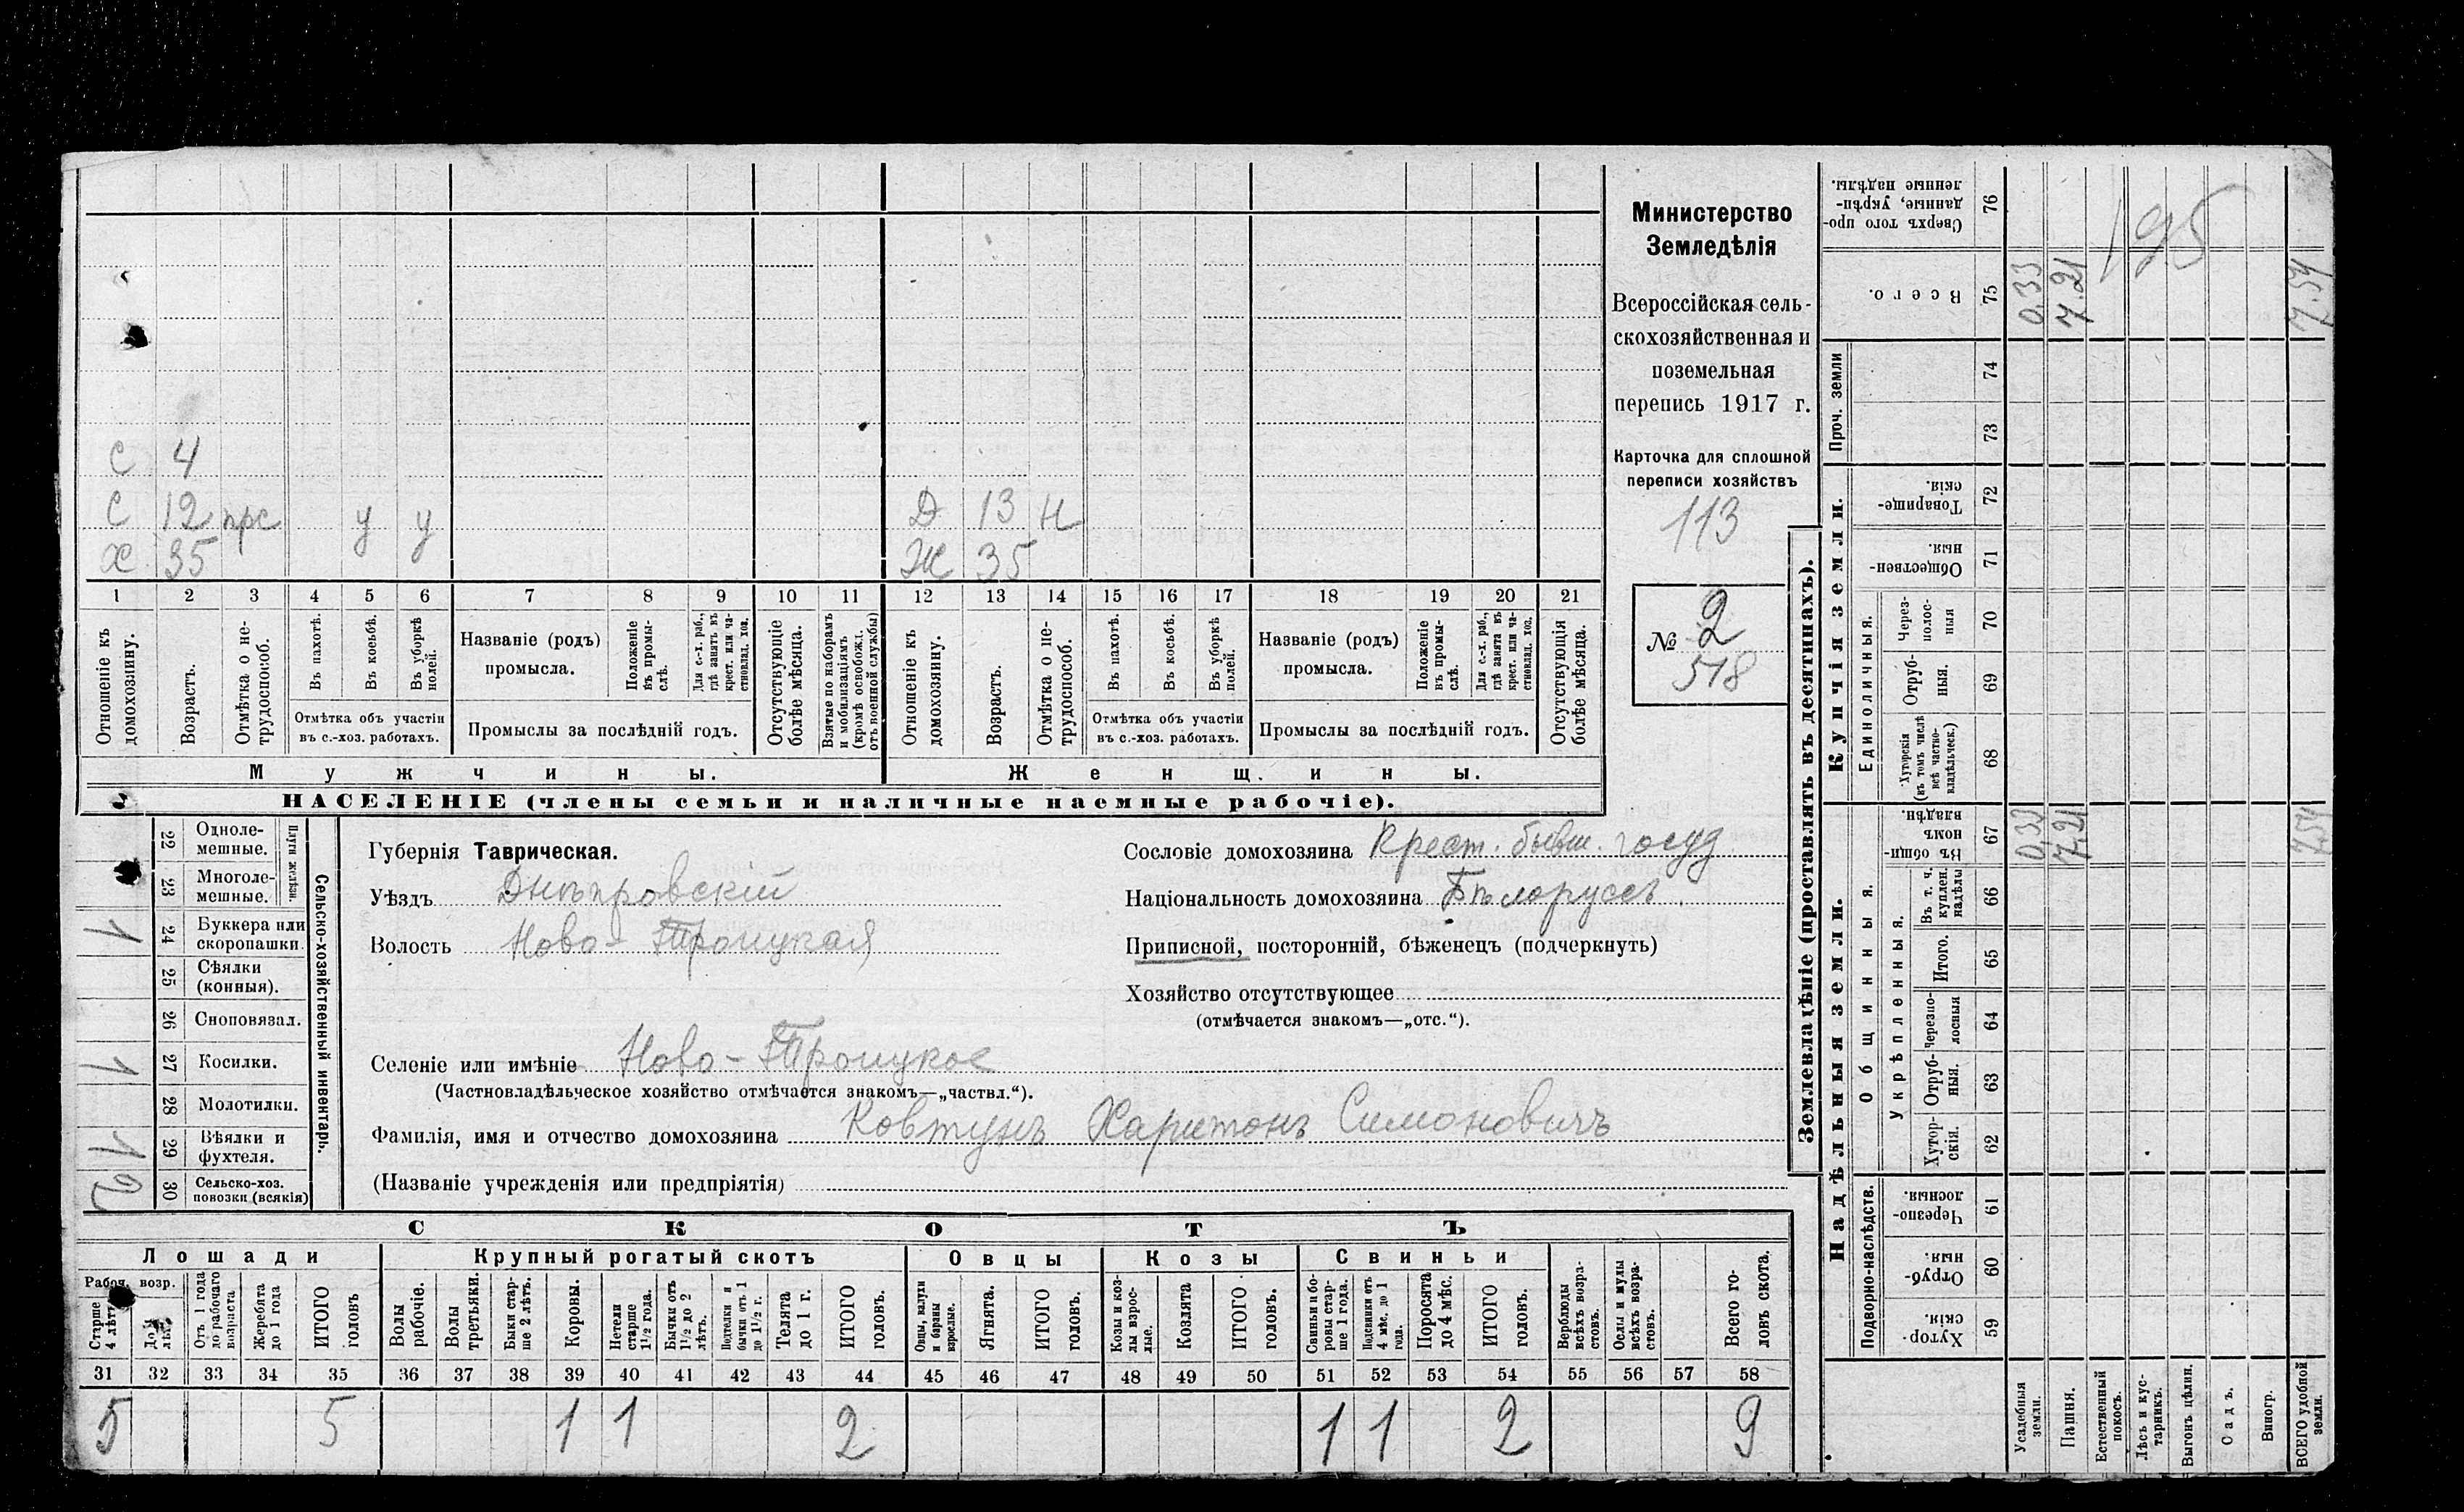 С 4
С 12 прс у у Д 13 Н
Х 35 Ж 35
1 2 3 4 5 6 7 8 9 10 11 12 13 14 15 16 17 18 19 20 21
Отношеніе къ домохозяину.
Возрастъ.
Отмѣтка о не-
трудоспособ.
Въ пахотѣ.
Въ косьбѣ.
Въ уборкѣ
полей.
Отмѣтка объ участіи
въ с.-хоз. работахъ.
Названіе (родъ)
промысла.
Положеніе
въ промы-
слѣ.
Для с.-х. раб.,
гдѣ занятъ въ
крест. или ча-
стновлад. хоз.
Промыслы за послѣдній годъ.
Отсутствующіе
болѣе мѣсяца.
Взятые по наборамъ
и мобилизаціямъ
(кромѣ освобожд.
отъ военной службы)
Отношеніе къ
домохозяину.
Возрастъ.
Отмѣтка о не-
трудоспособ.
Въ пахотѣ.
Въ косьбѣ.
Въ уборкѣ
полей.
Отмѣтка объ участіи
въ с.-хоз. работахъ.
Названіе (родъ)
промысла.
Положеніе
въ промы-
слѣ.
Для с.-х. раб.,
гдѣ занята въ
крест. или ча-
стновлад. хоз.
Промыслы за послѣдній годъ.
Отсутствующія
болѣе мѣсяца.
Мужчины.
Женщины.
НАСЕЛЕНІЕ (члены семьи и наличные наемные рабочіе).
Министерство
Земледѣлія
Всероссійская сель-
скохозяйственная и
поземельная
перепись 1917 г.
Карточка для сплошной
переписи хозяйствъ
113
№ 2
518
22 Одноле-
мешные.
23 Многоле-
мешные.
Плуги желѣзн.
1 24 Буккера или
скоропашки.
25 Сѣялки
(конныя).
26 Сноповязал.
1 27 Косилки.
28 Молотилки.
1 29 Вѣялки и
фухтеля.
2 30 Сельско-хоз.
повозки (всякія)
Сельско-хозяйственный инвентарь.
Губернія Таврическая.
Уѣздъ Днѣпровскій
Волость Ново-Троицкая
Сословіе домохозяина Крест. бывш. госуд
Національность домохозяина Бѣлоруссъ
Приписной, посторонній, бѣженецъ (подчеркнуть)
Хозяйство отсутствующее
(отмѣчается знакомъ—„отс.“).
Селеніе или имѣніе Ново-Троицкое
(Частновладѣльческое хозяйство отмѣчается знакомъ—„частвл.“).
Фамилія, имя и отчество домохозяина Ковтунъ Харитонъ Симоновичъ
(Названіе учрежденія или предпріятія)
СКОТЪ
Лошади
Крупный рогатый скотъ
Овцы
Козы
Свиньи
Рабоч. возр.
Старше
4 лѣтъ
До 4
лѣтъ
Отъ 1 года
до рабочаго
возраста
Жеребята
до 1 года
ИТОГО
головъ
Волы
рабочіе.
Волы
третьяки.
Быки стар-
ше 2 лѣтъ.
Коровы.
Нетели
старше
1½ года.
Бычки отъ
1½ до 2
лѣтъ.
Подтелки и
бычки отъ 1
до 1½ г.
Телята
до 1 г.
ИТОГО
головъ.
Овцы, валухи
и бараны
взрослые.
Ягнята.
ИТОГО
головъ.
Козы и коз-
лы взрос-
лые.
Козлята
ИТОГО
головъ.
Свиньи и бо-
ровы стар-
ше 1 года.
Подсвинки отъ
4 мѣс. до 1
года.
Поросята
до 4 мѣс.
ИТОГО
головъ.
Верблюды
всѣхъ возра-
стовъ.
Ослы и мулы
всѣхъ возра-
стовъ.
Всего го-
ловъ скота.
31 32 33 34 35 36 37 38 39 40 41 42 43 44 45 46 47 48 49 50 51 52 53 54 55 56 57 58
5 5 1 1 2 1 1 2 9
Землевладѣніе (проставлять въ десятинахъ).
Надѣльныя земли.
Купчія земли.
Проч. земли
Подворно-наслѣдств.
Общинныя.
Укрѣпленныя.
Единоличныя.
Сверхъ того про-
данные, укрѣп-
ленные надѣлы.
76
195
Всего.
75 0.33 7.21 7.54
74
73
Товарище-
скія.
72
Обществен-
ныя.
71
Через-
полос-
ныя
70
Отруб-
ныя.
69
Хуторскія
(въ томъ числѣ
всѣ частно-
владѣльческ.)
68
Въ общин-
номъ
владѣн.
67 0.33 7.21 7.54
Въ т. ч.
куплен.
надѣлы
66
Итого.
65
Черезпо-
лосныя
64
Отруб-
ныя.
63
Хутор-
скія.
62
Черезпо-
лосныя.
61
Отруб-
ныя.
60
Хутор-
скія.
59
Усадебныя
земли.
Пашня.
Естественный
покосъ.
Лѣсъ и кус-
тарникъ.
Выгонъ цѣлин.
Садъ.
Виногр.
ВСЕГО удобной
земли.